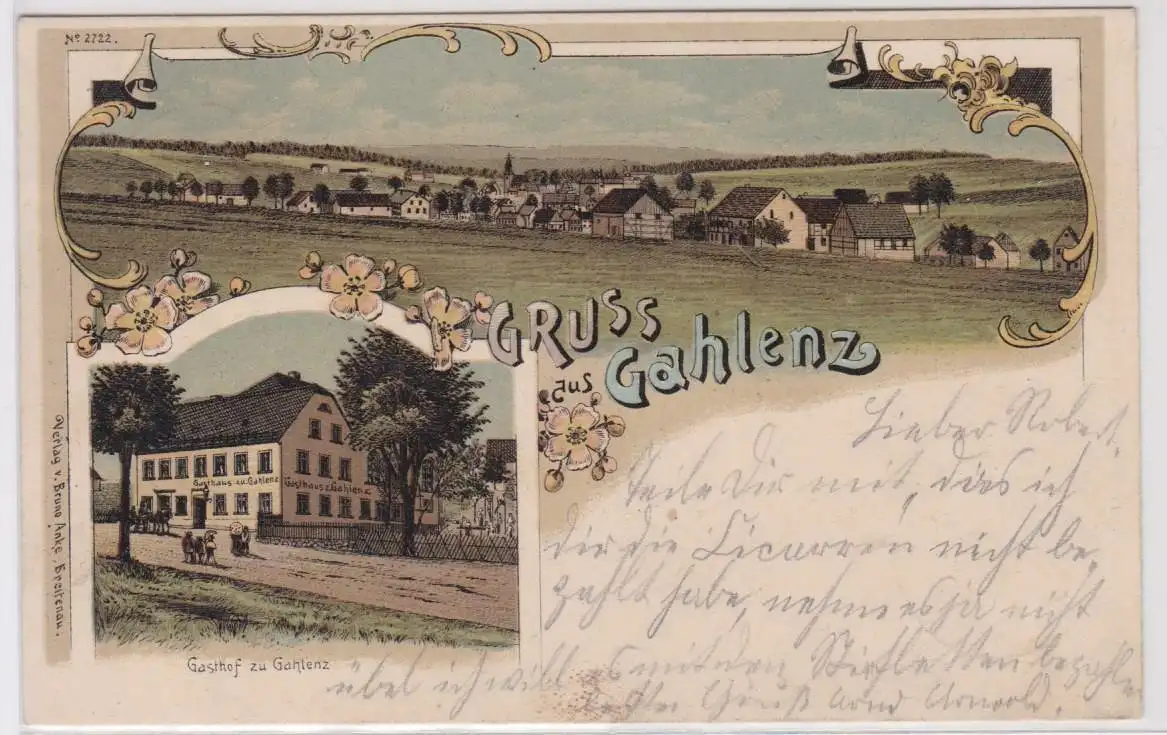 No 2722.
GRUSS
aus
Gahlenz
Gasthaus zu Gahlenz
Gasthaus z. Gahlenz
Gasthof zu Gahlenz
Verlag v. Bruno Anke, Breitenau.
Lieber Robert.
Teile Dir mit, dass ich
dir die Cicarren nicht be-
zahlt habe, nehme es ja nicht
übel ich will es mit den bezahlen
Gruß Arnold.